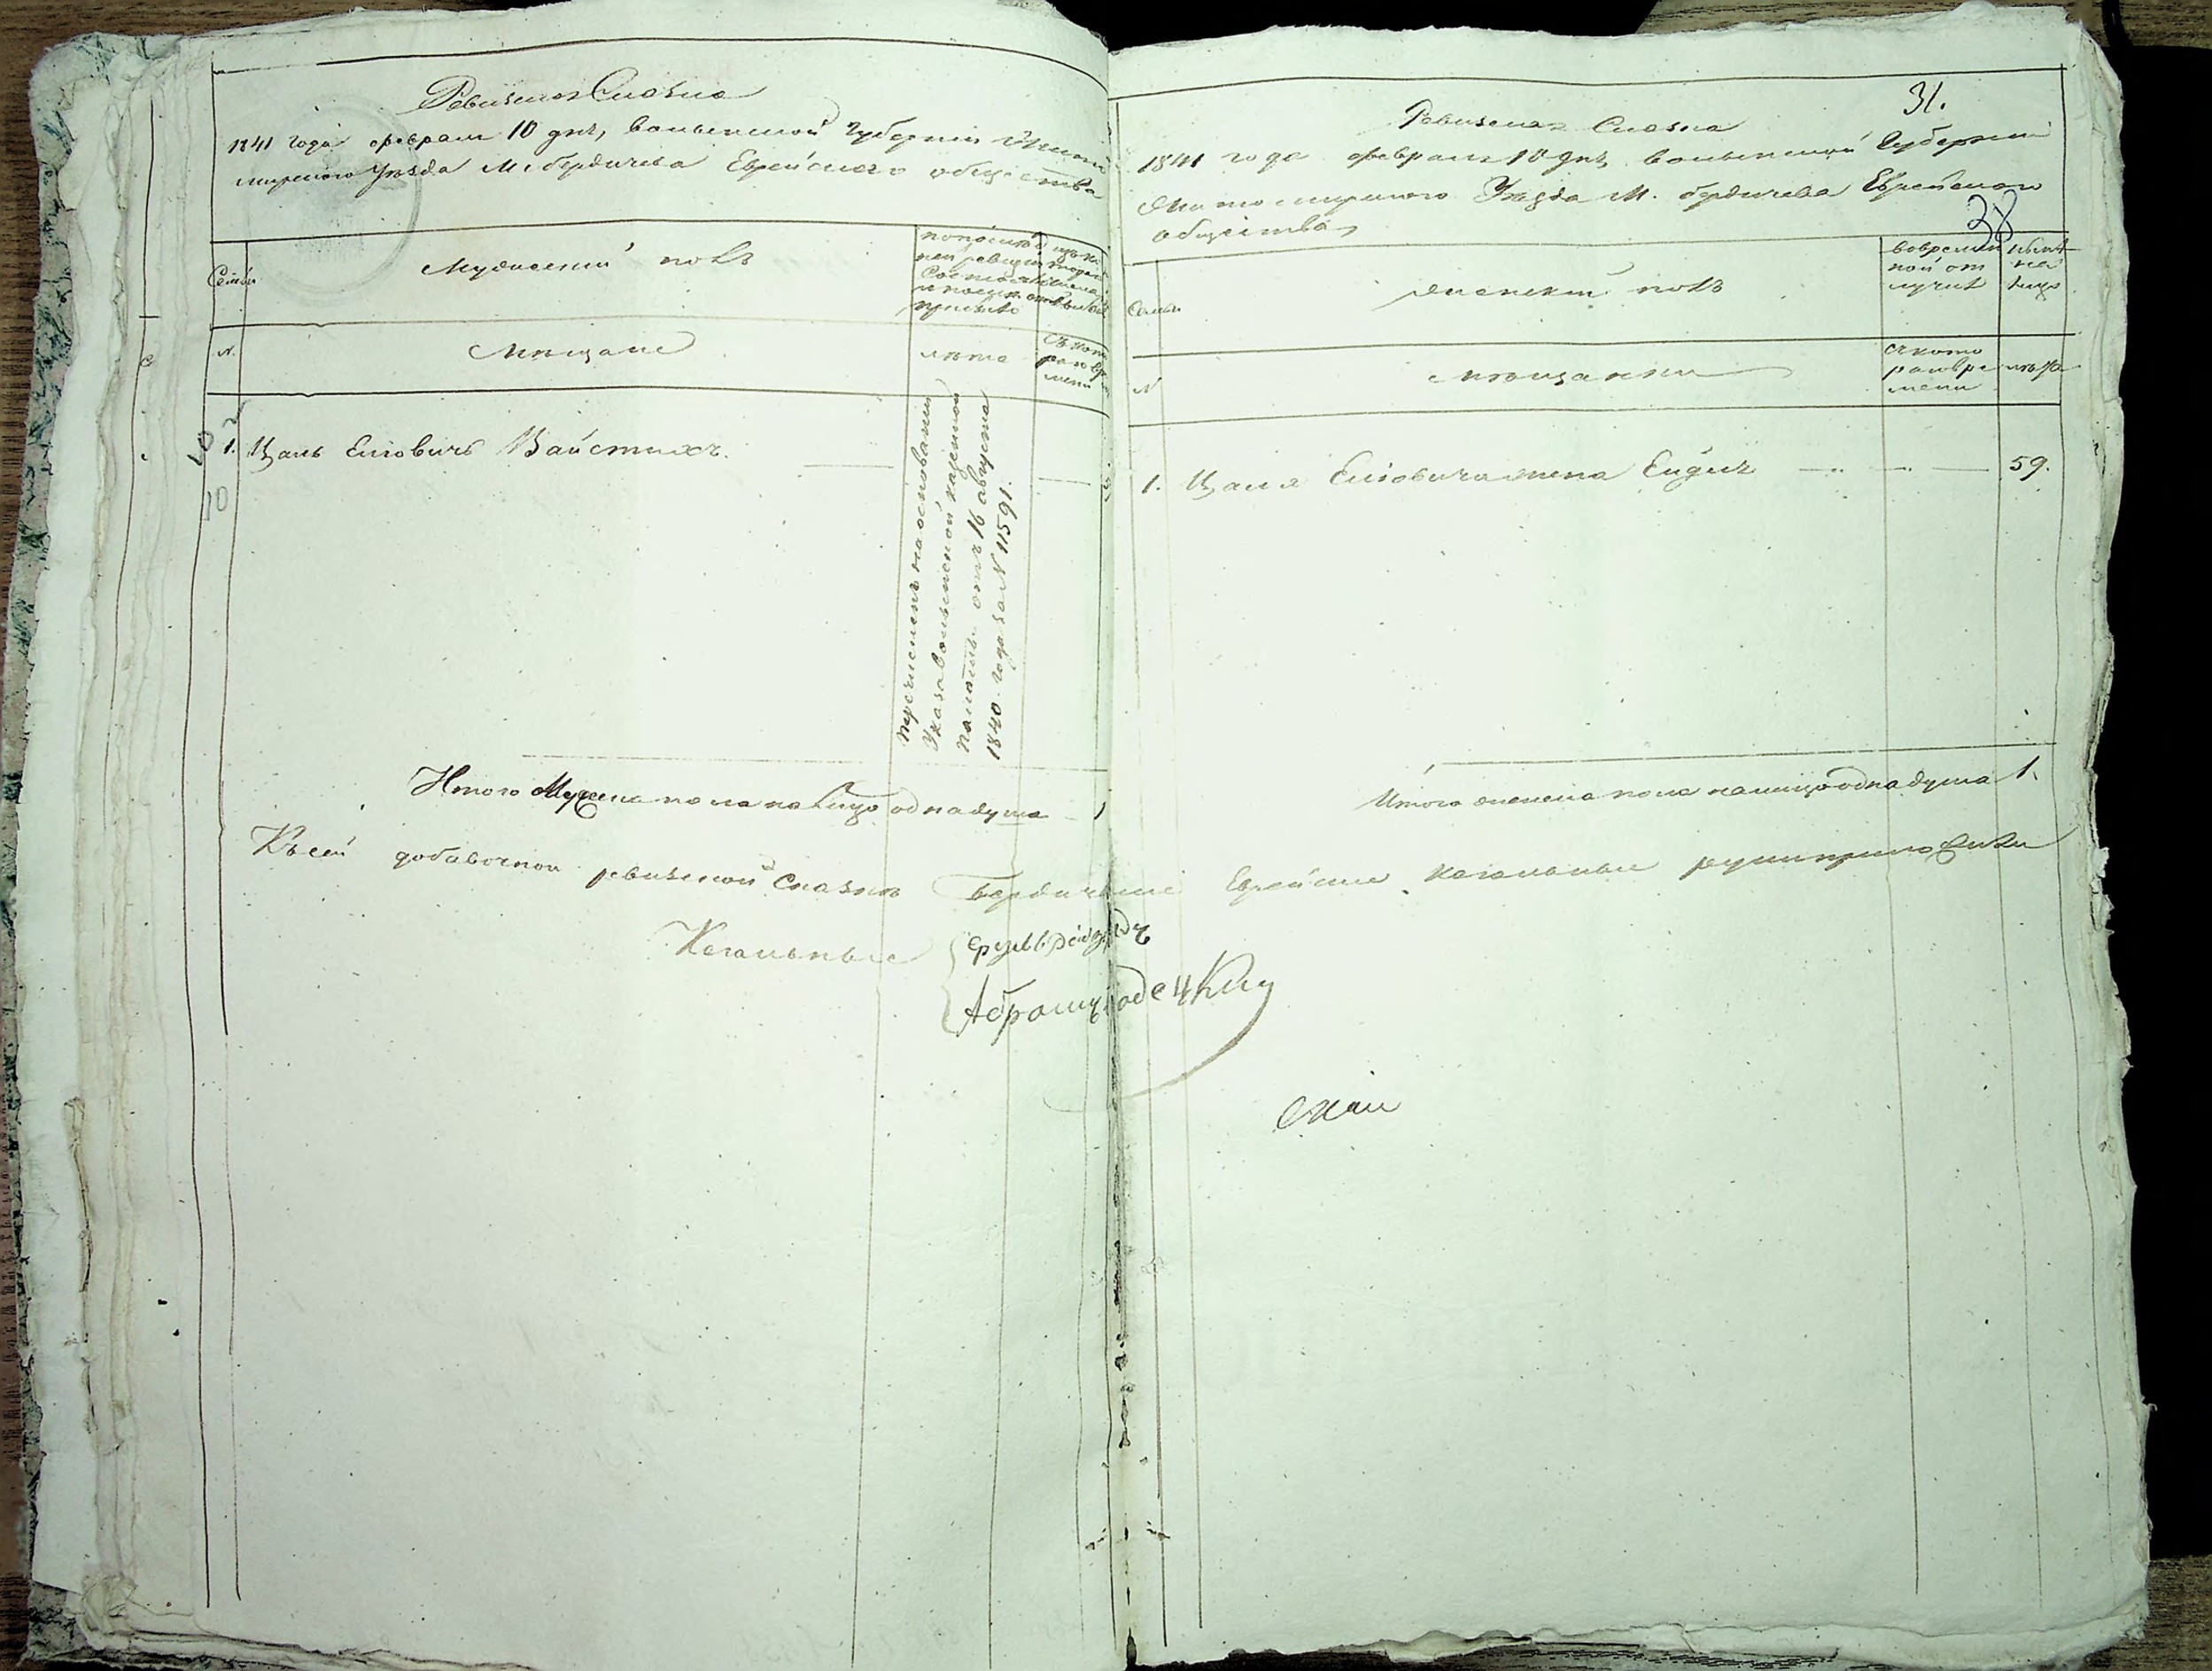 Ревизская Сказка
1841 года февраля 10 дня, Волынской Губернии Жито
мирского Уезда М. Бердичева Еврейского общества
Семьи
Мужеский полъ
по последней ревизии состояло и после оной прибыло
изъ того числа выбыло
N.
Мещане
лета
съ кото
раго вре
мени
1. Цаль Елiовичъ Вайстихъ.
перечисленъ на основании
Указа Волынской казенной
палаты отъ 16 августа
1840 года за N 11591.
10
Итого Мужеска пола на лицо одна душа 1
31.
Ревизская Сказка
1841 года февраля 10 дня Волынской Губернии
Житомирского Уезда М. Бердичева Еврейского
общества
38
Семьи
Женский полъ
во времян
ной от
лучке
ныне
на
лицо
N
мещанки
съ кото
раго вре
мени
лета
1. Цаля Елiовича жена Ейдля 59.
Итого женска пола налицо одна душа 1.
Къ сей добавочной ревизской сказке Бердичевские Еврейские кагальные руки приложили
Кагальные
Абрамъ Родецкий